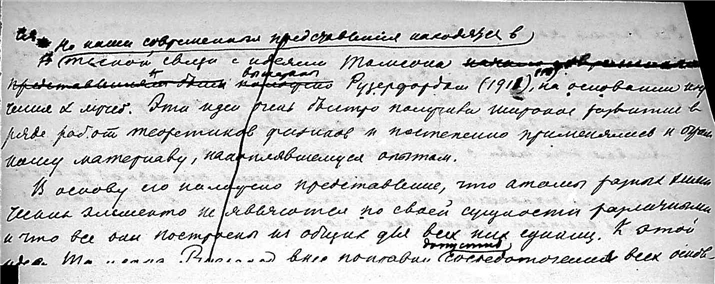 Но наши современные представления находятся в
тѣсной связи с идеями Томсона
были высказаны Рузерфордом (1911), на основании изу
чения α лучей. Эти идеи очень быстро получили широкое развитие в
ряде работ теоретиков физиков и постепенно применялись к огром
ному материалу, накоплявшемуся опытом.
В основу его положено представление, что атомы разных хими
ческих элементов не являются по своей сущности различными
и что все они построены из общих для всех них единиц. К этой
допустив
идее внес поправки сосредоточения всех основ-